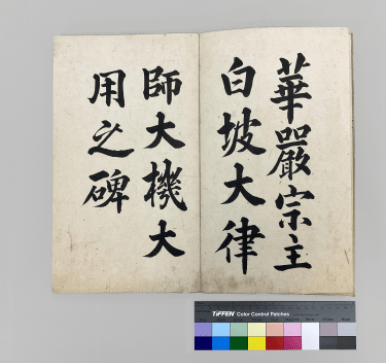 華嚴宗主
白坡大律
師大機大
用之碑
TIFFEN Color Control Patches